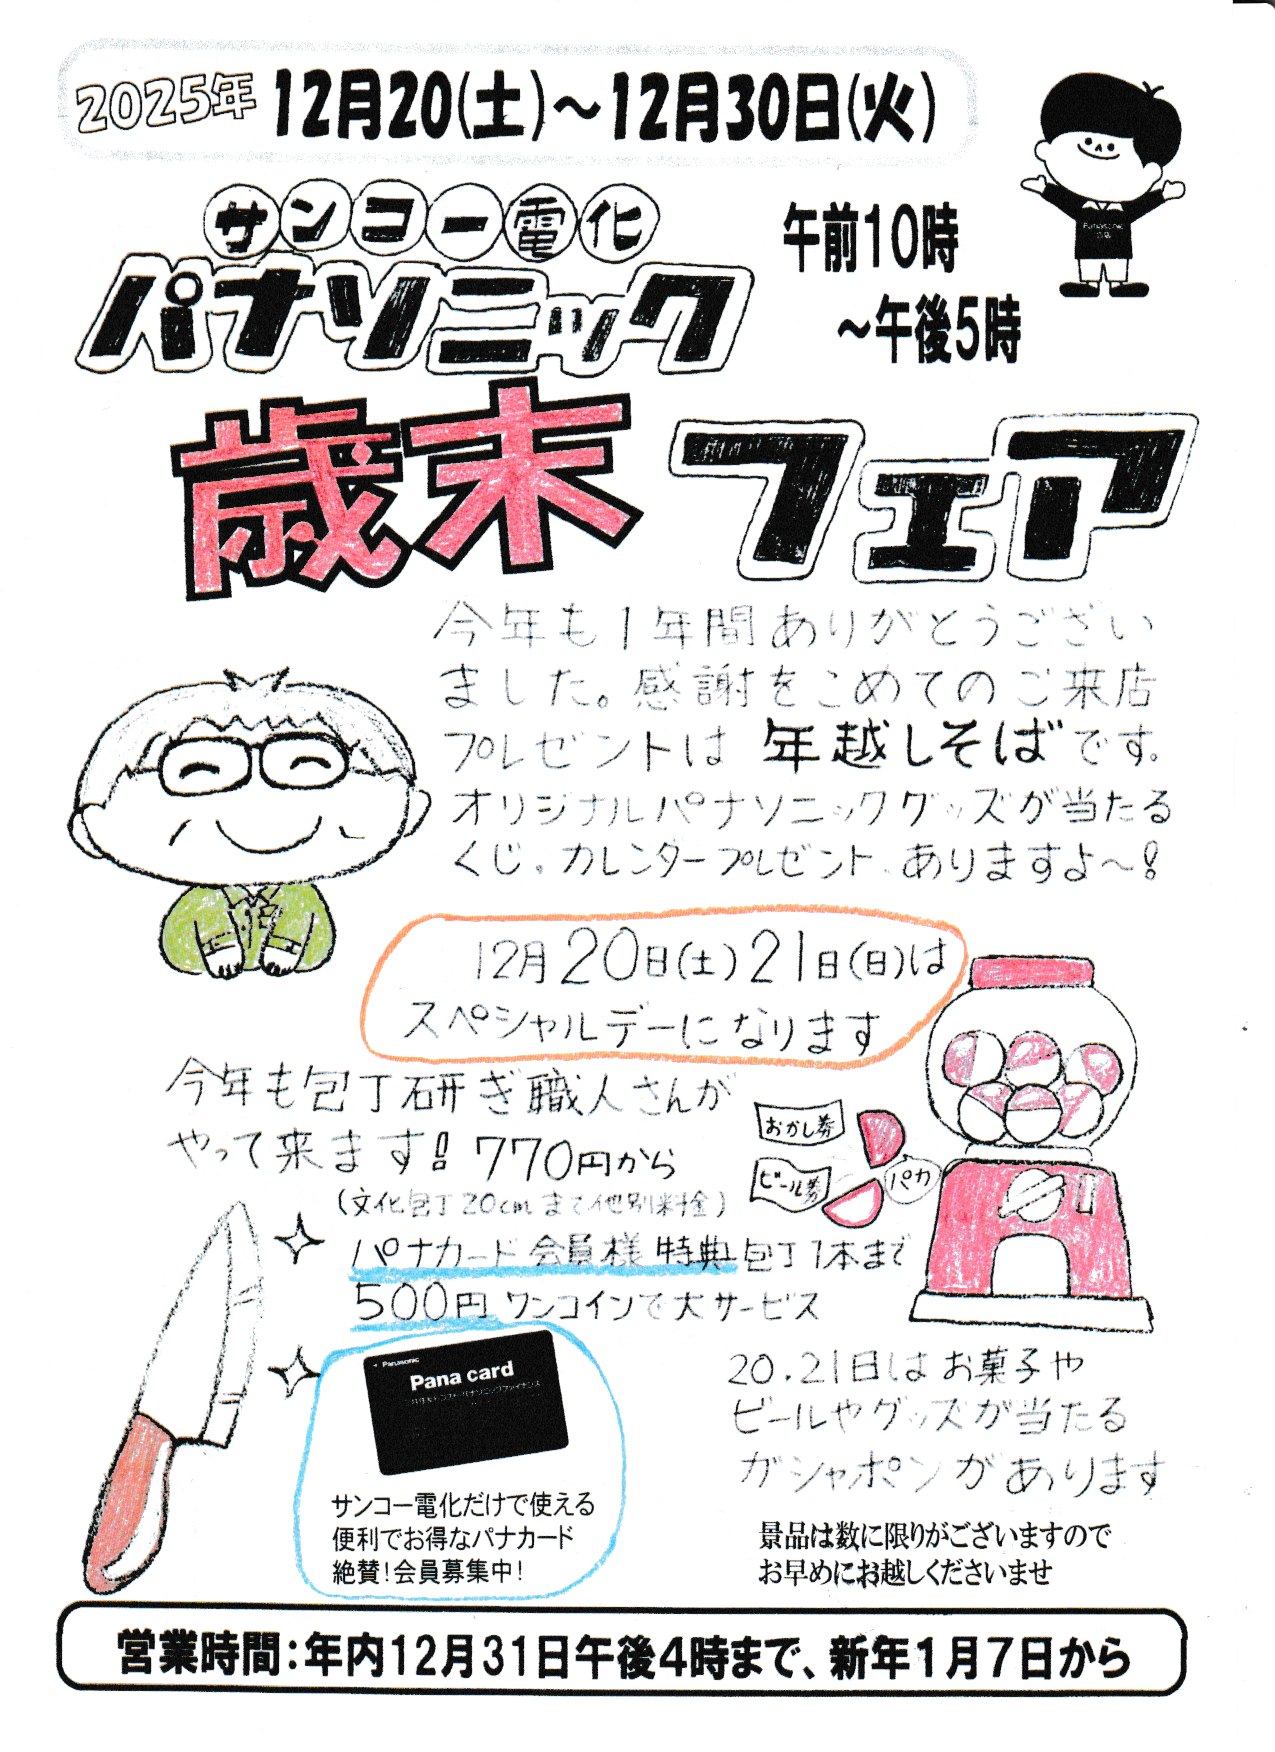 2025年 12月20(土)～12月30日(火)
サンコー電化
パナソニック
午前10時
～午後5時
歳末フェア
今年も1年間ありがとうござい
ました。感謝をこめてのご来店
プレゼントは 年越しそばです。
オリジナルパナソニックグッズが当たる
くじ。カレンダープレゼント、ありますよ～!
12月20日(土)21日(日)は
スペシャルデーになります
今年も包丁研ぎ職人さんが
やって来ます!770円から
(文化包丁20cmまで他別料金)
パナカード会員様特典包丁1本まで
500円ワンコインで大サービス
おかし券
ビール券
パカ
Panasonic
Pana card
サンコー電化だけで使える
便利でお得なパナカード
絶賛!会員募集中!
20.21日はお菓子や
ビールやグッズが当たる
ガシャポンがあります
景品は数に限りがございますので
お早めにお越しくださいませ
営業時間:年内12月31日午後4時まで、新年1月7日から